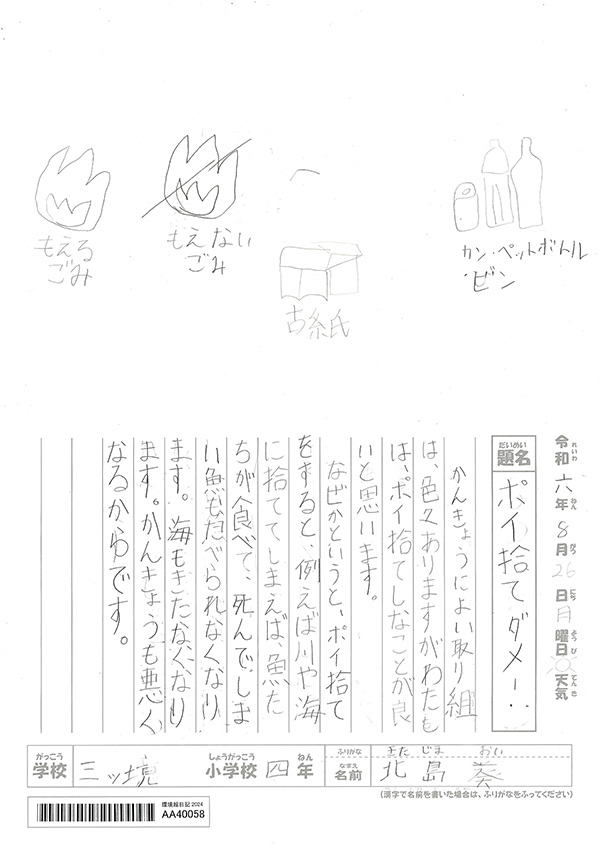 もえる
ごみ
もえない
ごみ
古紙
カン・ペットボトル
・ビン
令和六年8月26日月曜日 天気
れいわ ねん がつ にち ようび てんき
だいめい
題名
ポイ捨てダメ!!
かんきょうによい取り組
は、色々ありますがわたしも
は、ポイ捨てしなことが良
いと思います。
なぜかというと、ポイ捨て
をすると、例えば川や海
に捨ててしまえば、魚た
ちが食べて、死んでしま
い魚もたべられなくなり
ます。海もきたなくなり
ます。かんきょうも悪く
なるからです。
がっこう
学校
三ッ境
しょうがっこう
小学校
四
ねん
年
ふりがな
なまえ
名前
きた じま おい
北島葵
(漢字で名前を書いた場合は、ふりがなをふってください)
環境絵日記2024
AA40058